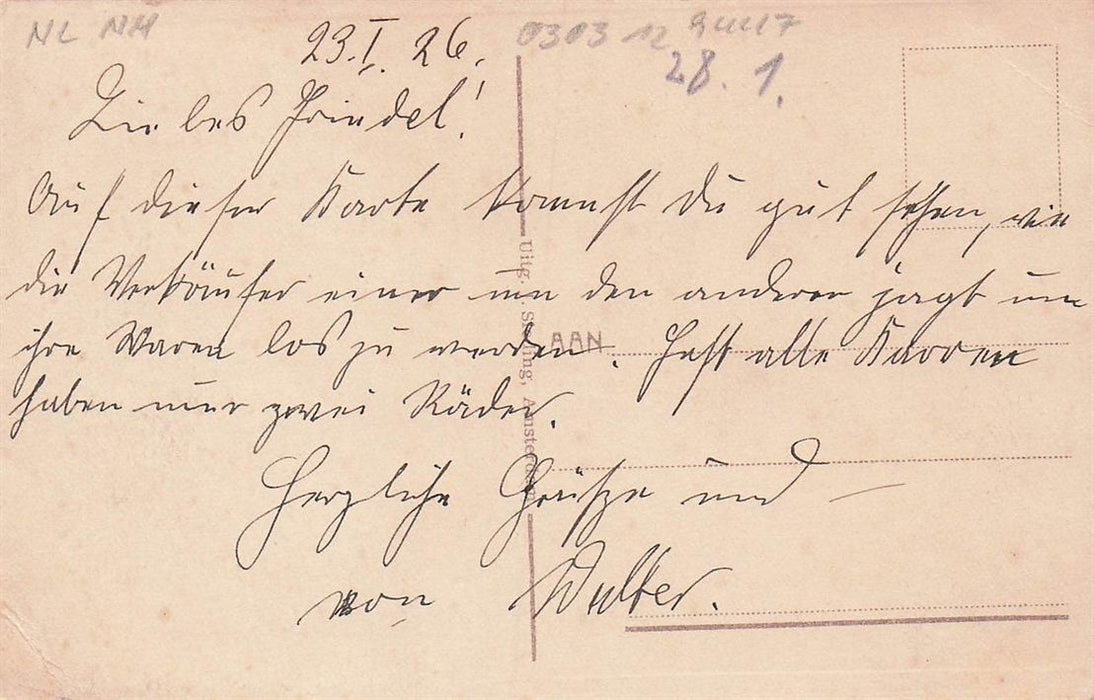 NL NH
23.I.26.
0303 12
28.1.
Liebes Friedel!
Auf dieser Karte kannst Du gut sehen, wie
die Verkäufer einer um den anderen jagt um
ihre Waren los zu werden. Fast alle Karren
haben nur zwei Räder.
Herzliche Grüße und —
von Walter.
AAN
Uitg. Amsterdam